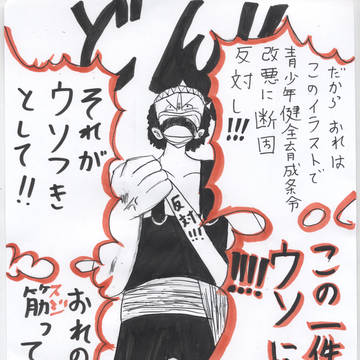 どん!!
だから おれは
このイラストで
青少年健全育成条令
改悪に断固
反対し!!!
それが
ウソつき
として!!
反対!!!
この一件
ウソに
!!!!
おれの
筋って
スジ